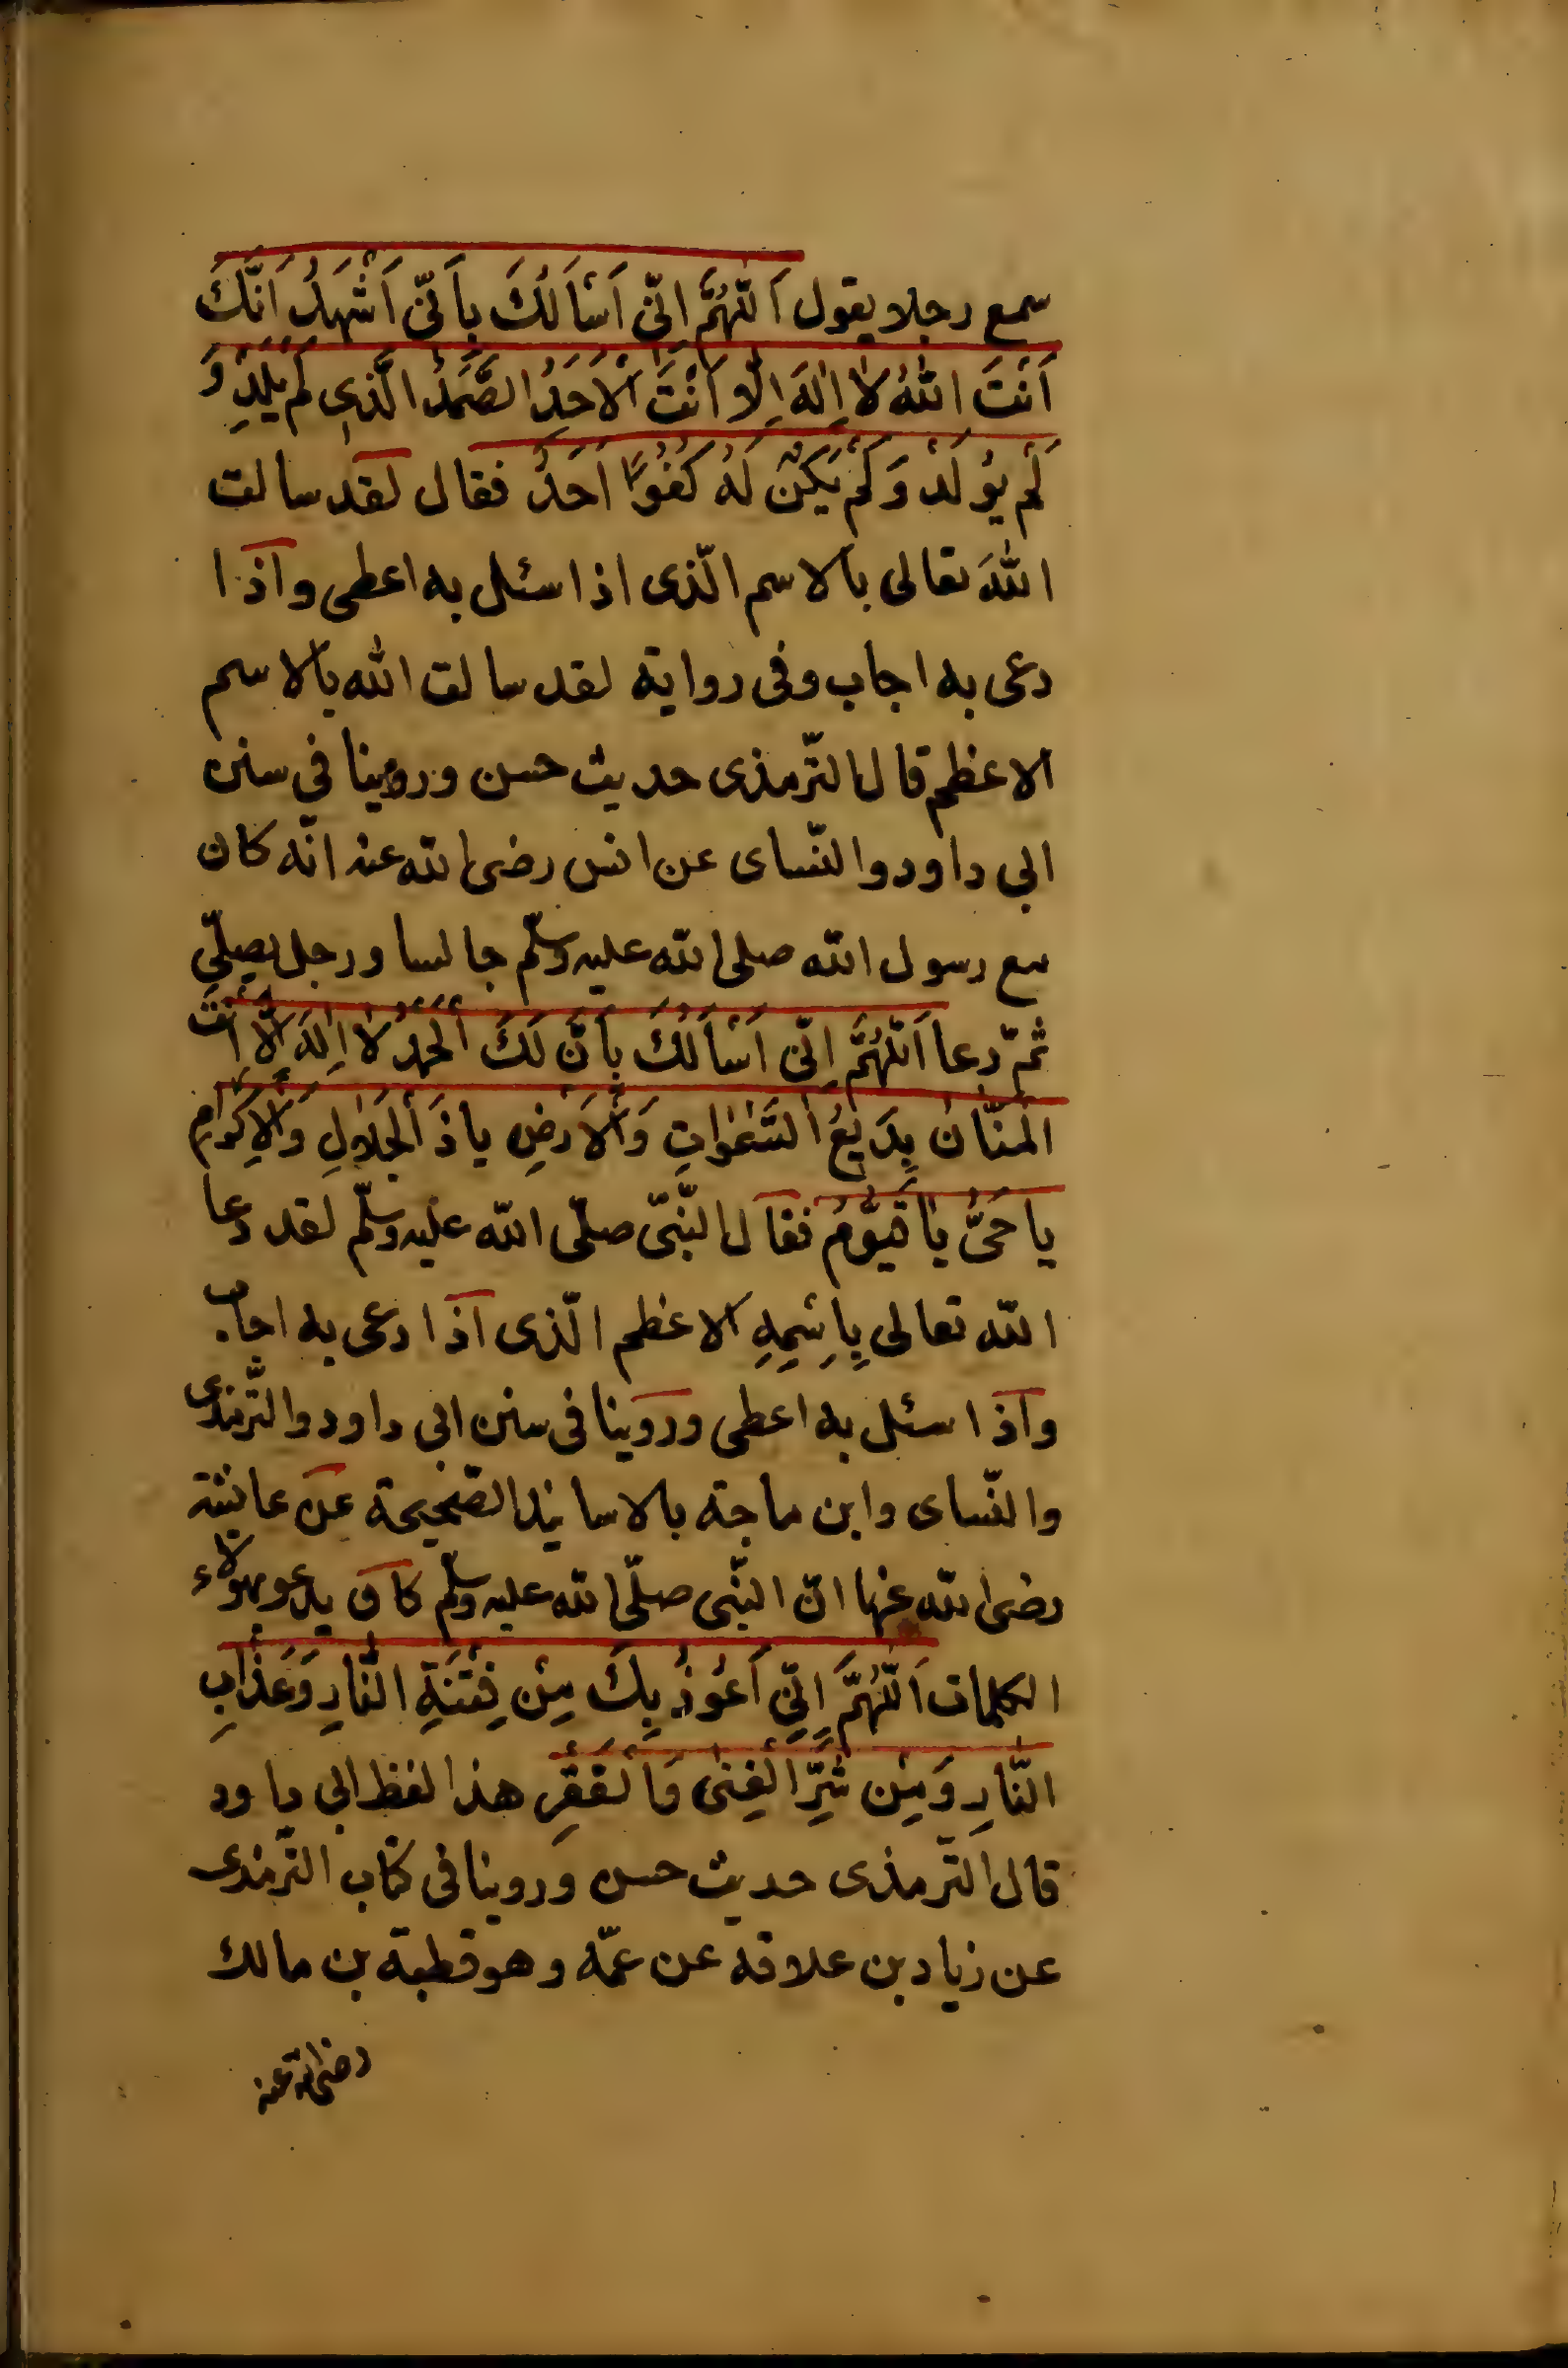 سمع رجلا يقول اَللّٰهُمَّ اِنّى اَسْاَلُكَ بِاَنّى اَشْهَدُ اَنَّكَ
اَنْتَ اللّٰهُ لَا اِلٰهَ اِلَّا اَنْتَ الْاَحَدُ الصَّمَدُ الَّذِى لَمْ يَلِدْ وَ
لَمْ يُوْلَدْ وَلَمْ يَكُنْ لَهُ كُفُوًا اَحَدٌ فقال لقد سالت
اللّٰهَ تعالى بالاسم الّذى اذا سئل به اعطى واذا
دعى به اجاب وفى رواية لقد سالت الله بالاسم
الاعظم قال التّرمذى حديث حسن وروينا في سنن
ابي داود والنّساى عن انس رضى الله عنه انّه كان
مع رسول الله صلى الله عليه وسلّم جالسا ورجل يصلّي
ثمّ دعا اَللّٰهُمَّ اِنّى اَسْاَلُكَ بِاَنَّ لَكَ الْحَمْدُ لَا اِلٰهَ اِلَّا اَنْتَ
الْمَنَّانُ بَدِيْعُ السَّمٰوَاتِ وَالْاَرْضِ يا ذَا الْجَلَالِ وَالْاِكْرَامِ
يا حَىُّ يَا قَيُّوْمُ فقال النّبىّ صلّى الله عليه وسلّم لقد دعا
الله تعالى بِاِسْمِهِ الاعظم الّذى اذا دعى به اجاب
واذا سئل به اعطى وروينا فى سنن ابى داود والتّرمذى
والنّساى وابن ماجة بالاسانيد الصّحيحة عن عائشة
رضى الله عنها انّ النّبى صلّى الله عليه وسلّم كان يدعو بهولاء
الكلمات اَللّٰهُمَّ اِنِّي اَعُوْذُ بِكَ مِنْ فِتْنَةِ النَّارِ وَعَذَابِ
النَّارِ وَمِنْ شَرِّ الْغِنٰى وَالْفَقْرِ هذا لفظ ابي داود
قال التّرمذى حديث حسن وروينا فى كتاب التّرمذى
عن زياد بن علاقه عن عمّه وهو قطبة بن مالك
رضى الله عنه